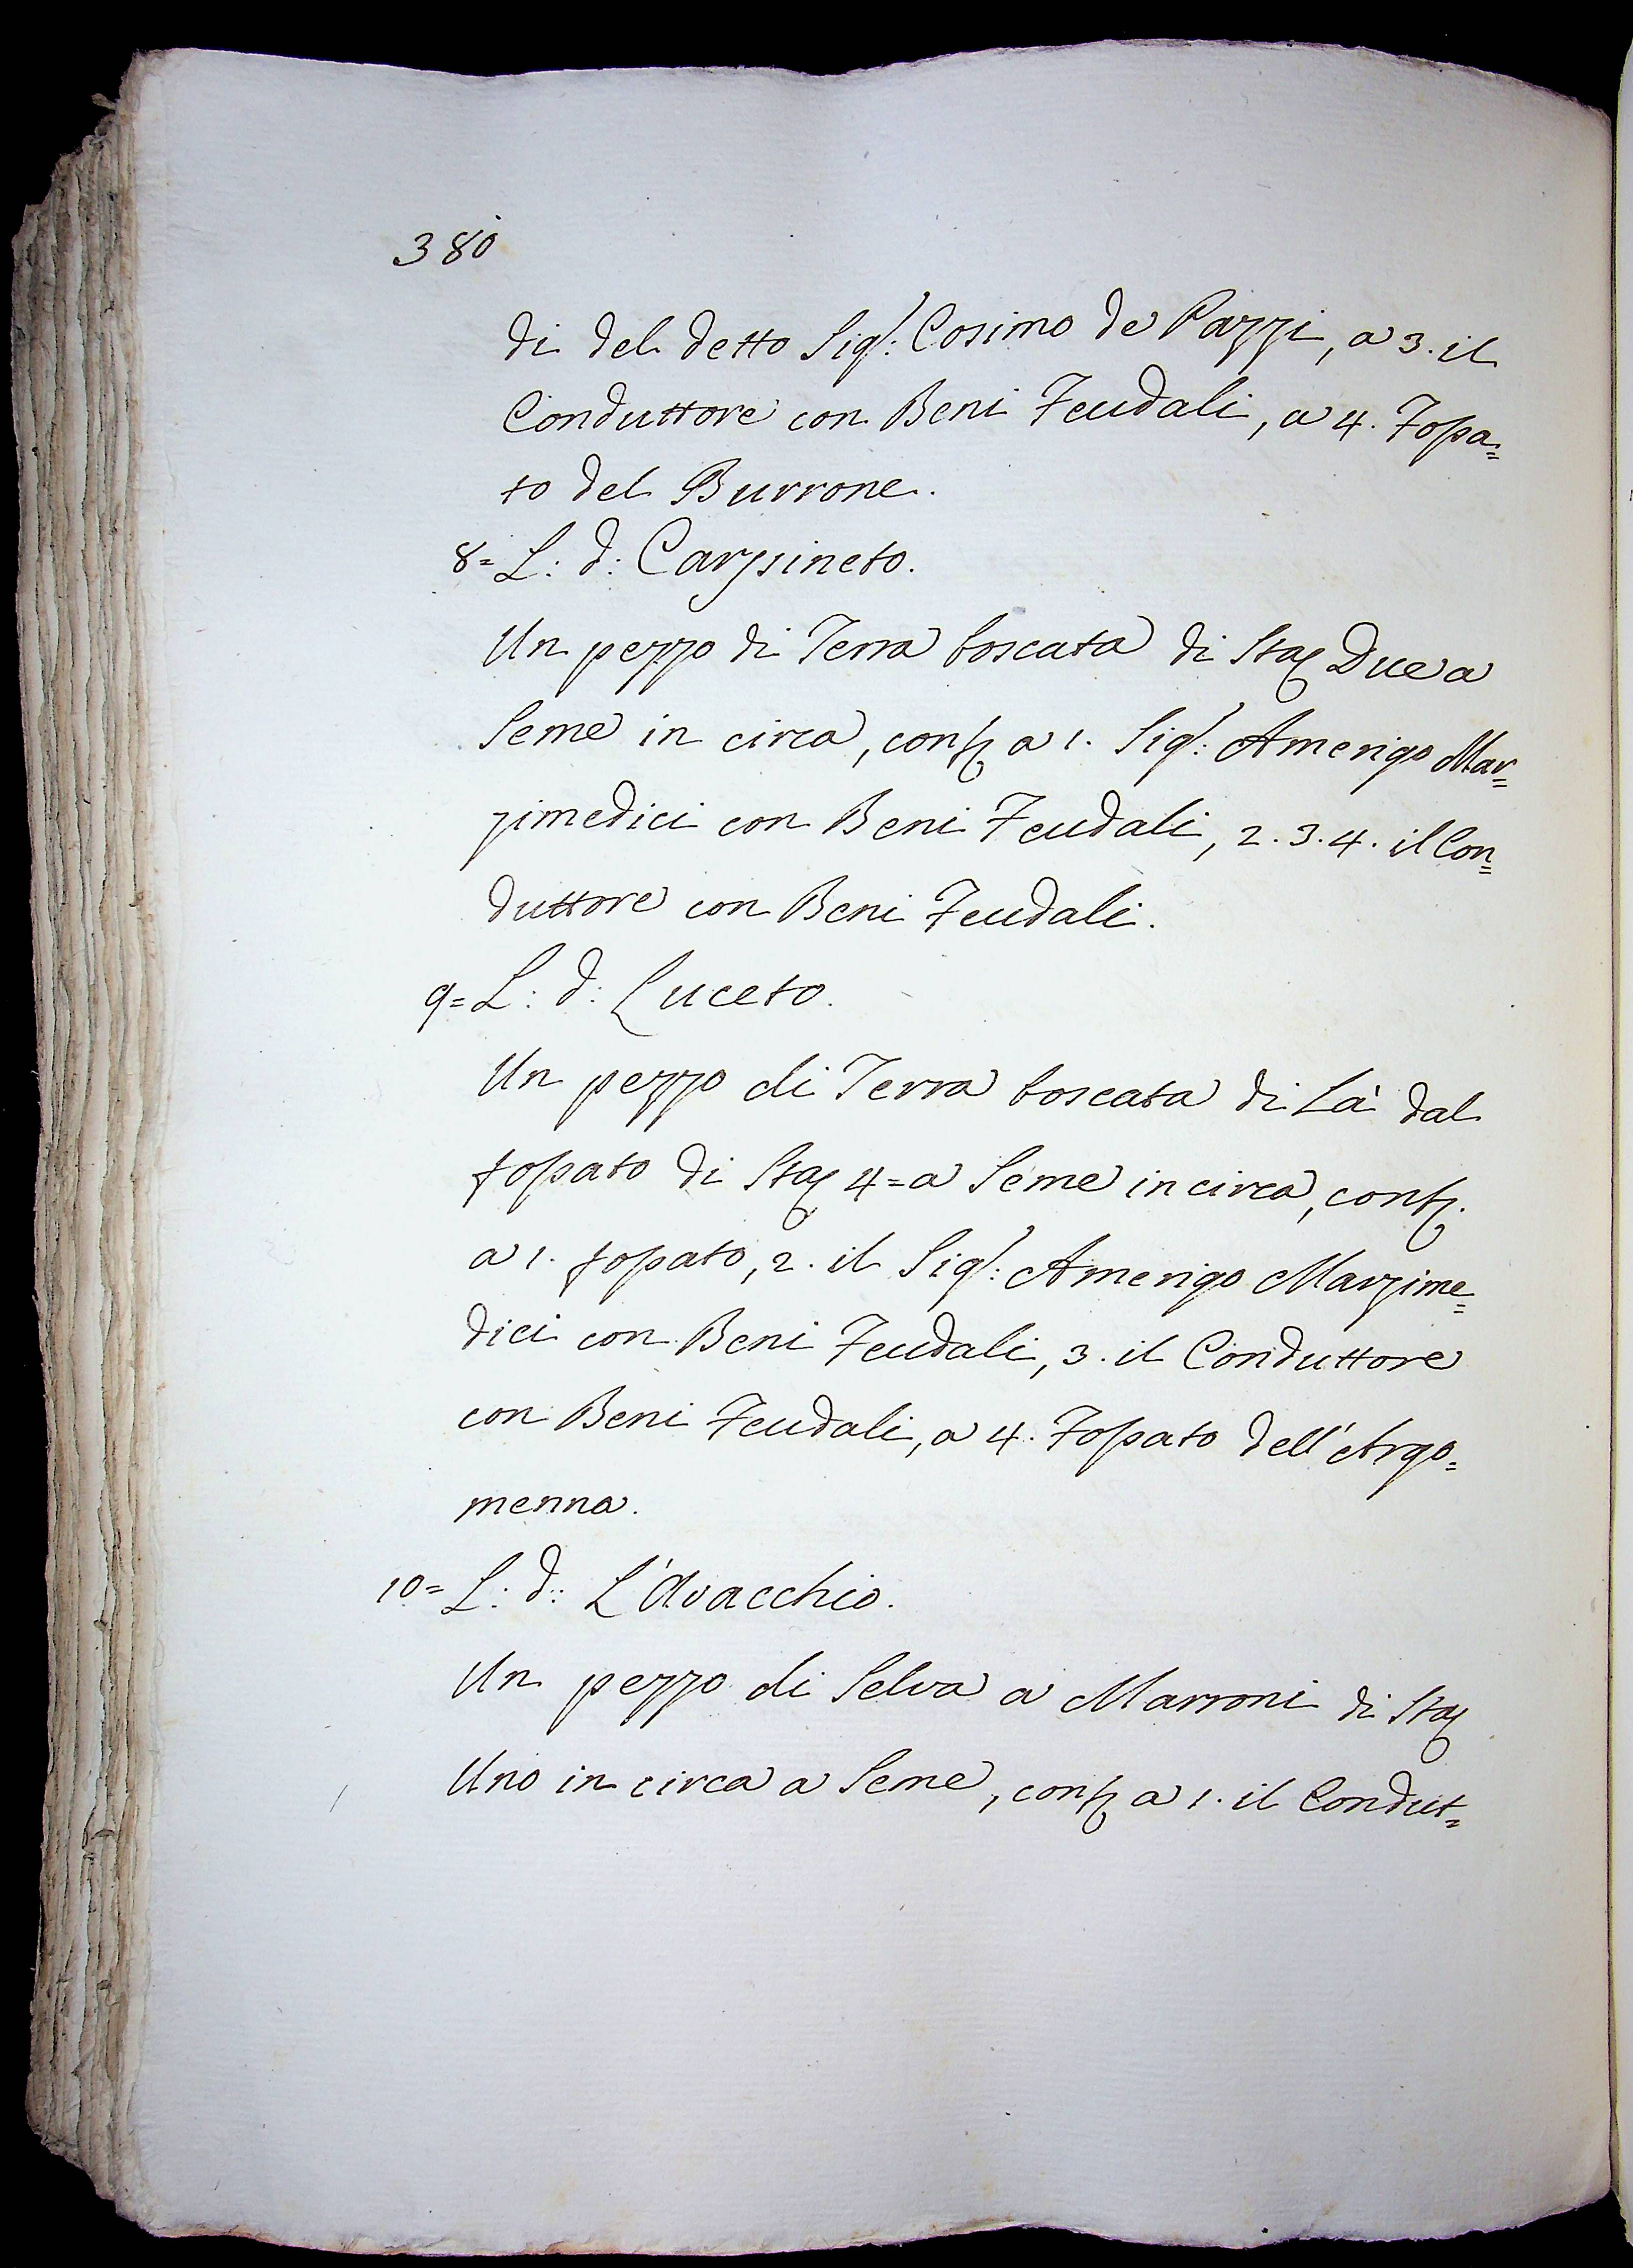 380
di del detto Sig:r Cosimo de Pazzi, a 3. il
Conduttore con Beni Feudali, a 4. Fossa=
to del Burrone.
8= L: d: Carpineto.
Un pezzo di Terra boscata di Sta Due a
Seme in circa, conf a 1. Sig:r Amerigo Mar=
zimedici con Beni Feudali, 2. 3. 4. il Con=
duttore con Beni Feudali.
9= L: d: Luceto.
Un pezzo di Terra boscata di Là dal
fossato di Sta 4= a Seme in circa, conf.
a 1. fossato, 2. il Sig:r Amerigo Marzime=
dici con Beni Feudali, 3. il Conduttore
con Beni Feudali, a 4. Fossato dell'Argo=
menna.
10= L: d: L'Avacchio.
Un pezzo di Selva a Marroni di Sta
Uno in circa a Seme, conf a 1. il Condut=